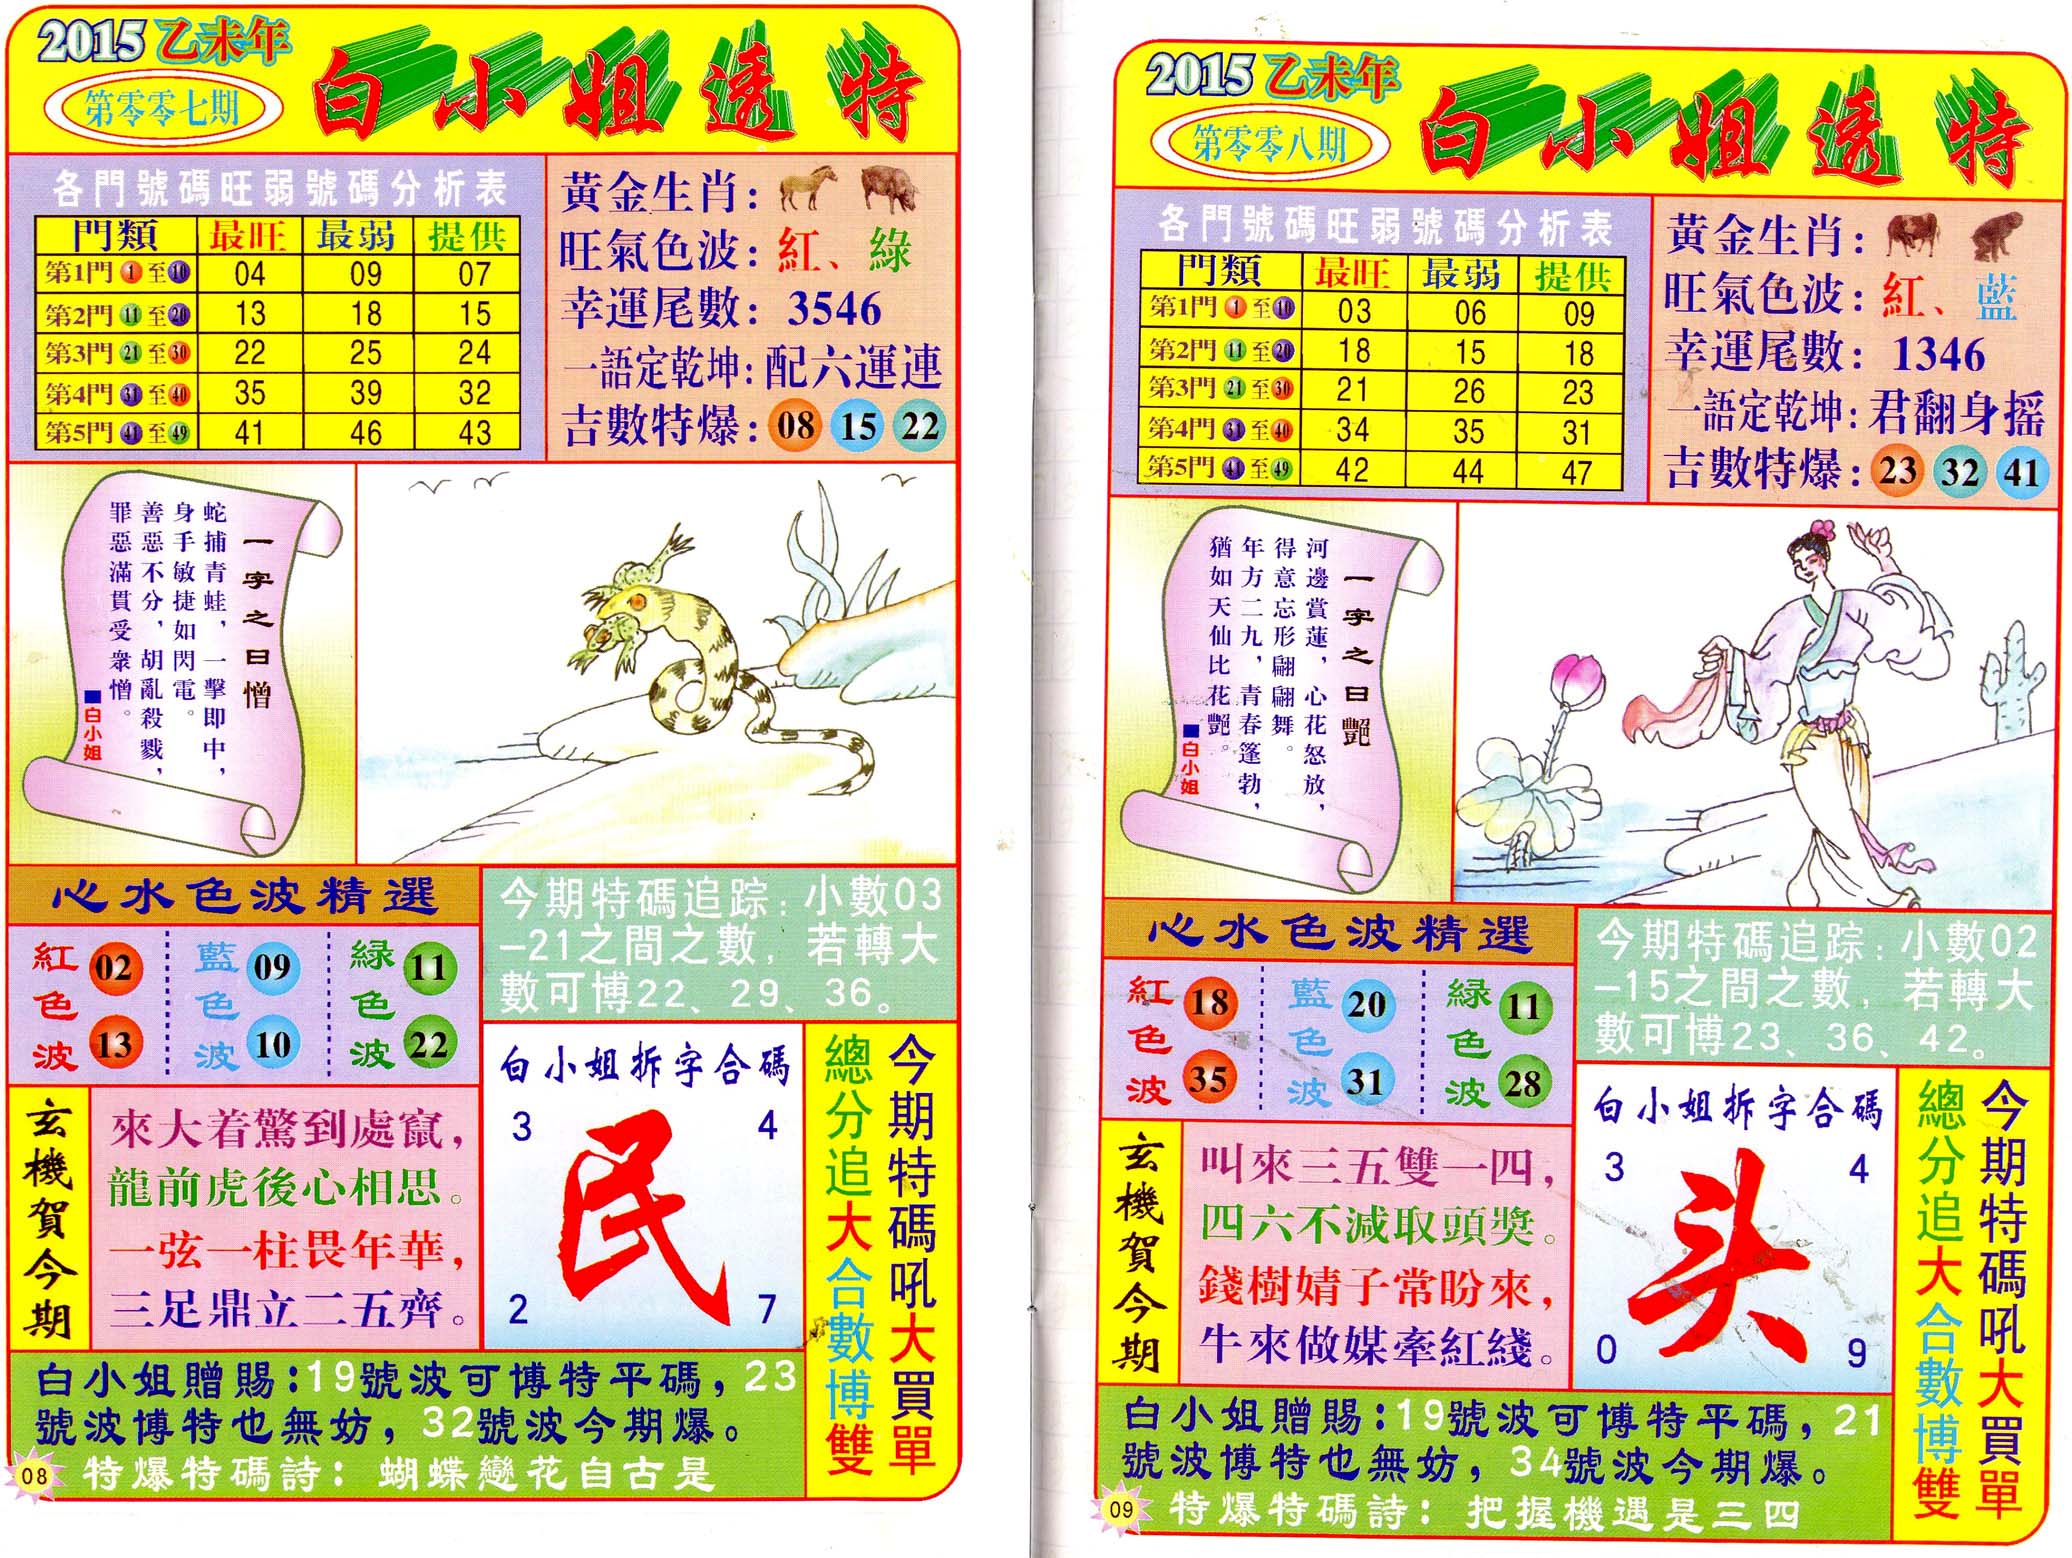 2015 乙未年
第零零七期
白小姐透特
各門號碼旺弱號碼分析表
門類 最旺 最弱 提供
第1門 1 至 10 04 09 07
第2門 11 至 20 13 18 15
第3門 21 至 30 22 25 24
第4門 31 至 40 35 39 32
第5門 41 至 49 41 46 43
黃金生肖：
旺氣色波：紅、綠
幸運尾數：3546
一語定乾坤：配六運連
吉數特爆：08 15 22
一字之曰憎
蛇捕青蛙，一擊即中，
身手敏捷如閃電。
善惡不分，胡亂殺戮，
罪惡滿貫受衆憎。
■白小姐
心水色波精選
紅色波 02 13
藍色波 09 10
緑色波 11 22
今期特碼追踪：小數03
-21之間之數，若轉大
數可博22、29、36。
玄機賀今期
來大着驚到處竄，
龍前虎後心相思。
一弦一柱畏年華，
三足鼎立二五齊。
白小姐拆字合碼
3 4
民
2 7
今期特碼吼大買單
總分追大合數博雙
白小姐贈賜：19號波可博特平碼，23
號波博特也無妨，32號波今期爆。
特爆特碼詩：蝴蝶戀花自古是
08
2015 乙未年
第零零八期
白小姐透特
各門號碼旺弱號碼分析表
門類 最旺 最弱 提供
第1門 1 至 10 03 06 09
第2門 11 至 20 18 15 18
第3門 21 至 30 21 26 23
第4門 31 至 40 34 35 31
第5門 41 至 49 42 44 47
黃金生肖：
旺氣色波：紅、藍
幸運尾數：1346
一語定乾坤：君翻身摇
吉數特爆：23 32 41
一字之曰艷
河邊賞蓮，心花怒放，
得意忘形翩翩舞。
年方二九，青春篷勃，
猶如天仙比花艷。
■白小姐
心水色波精選
紅色波 18 35
藍色波 20 31
緑色波 11 28
今期特碼追踪：小數02
-15之間之數，若轉大
數可博23、36、42。
玄機賀今期
叫來三五雙一四，
四六不減取頭獎。
錢樹婧子常盼來，
牛來做媒牽紅綫。
白小姐拆字合碼
3 4
头
0 9
今期特碼吼大買單
總分追大合數博雙
白小姐贈賜：19號波可博特平碼，21
號波博特也無妨，34號波今期爆。
特爆特碼詩：把握機遇是三四
09